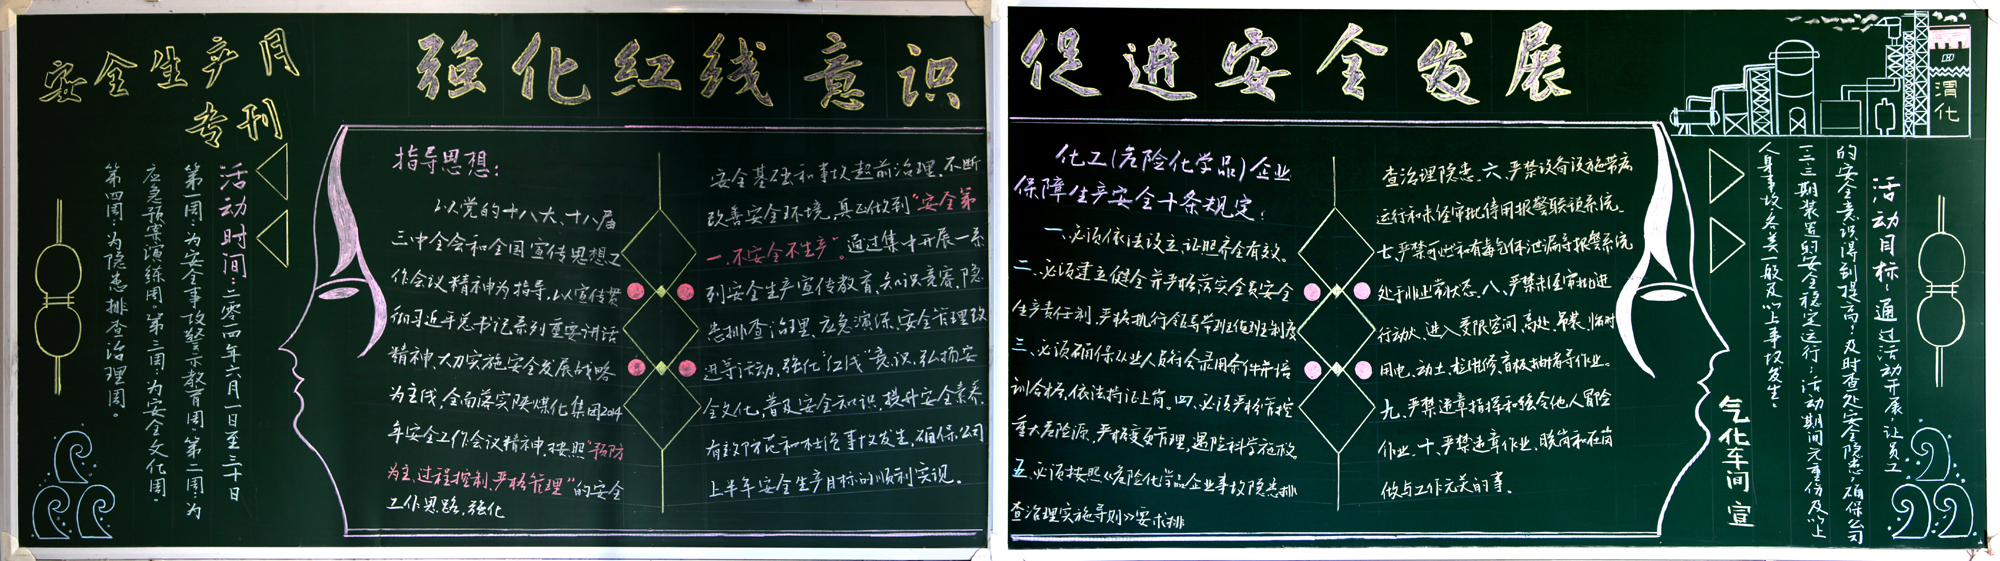 安全生产月
专刊
强化红线意识
促进安全发展
活动时间：二零一四年六月一日至三十日
第一周：为安全事故警示教育周 第二周：为
应急预案演练周 第三周：为安全文化周。
第四周：为隐患排查治理周。
指导思想：
以党的十八大、十八届
三中全会和全国宣传思想工
作会议精神为指导，以宣传贯
彻习近平总书记系列重要讲话
精神，大力实施安全发展战略
为主线，全面落实陕煤化集团2014
年安全工作会议精神，按照“预防
为主、过程控制、严格管理”的安全
工作思路，强化
安全基础和事故超前治理，不断
改善安全环境，真正做到“安全第
一、不安全不生产”。通过集中开展一系
列安全生产宣传教育、知识竞赛、隐
患排查治理、应急演练、安全管理改
进等活动，强化“红线”意识，弘扬安
全文化，普及安全知识，提升安全素养，
有效防范和杜绝事故发生，确保公司
上半年安全生产目标的顺利实现。
化工（危险化学品）企业
保障生产安全十条规定：
一、必须依法设立、证照齐全有效。
二、必须建立健全并严格落实全员安全
生产责任制，严格执行领导带班值班制度
三、必须确保从业人员符合录用条件并培
训合格，依法持证上岗。四、必须严格管控
重大危险源，严格变更管理，遇险科学施救。
五、必须按照《危险化学品企业事故隐患排
查治理实施导则》要求排
查治理隐患。六、严禁设备设施带病
运行和未经审批停用报警联锁系统。
七、严禁可燃和有毒气体泄漏等报警系统
处于非正常状态。八、严禁未经审批进
行动火、进入受限空间、高处、吊装、临时
用电、动土、检维修、盲板抽堵等作业。
九、严禁违章指挥和强令他人冒险
作业。十、严禁违章作业、脱岗和在岗
做与工作无关的事。
渭化
活动目标：通过活动开展让员工
的安全意识得到提高；及时查处安全隐患，确保公司
一三期装置的安全稳定运行；活动期间无重伤及以上
人身事故，各类一般及以上事故发生。
气化车间 宣